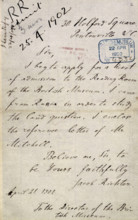 P.R.
25.4.1902
30 Holford Square
Pentonville W.C.
Sir,
I beg to apply for a ticket
of admission to the Reading Room
of the British Museum. I came
from Russia in order to study
the land question. I enclose
the reference letter of Mr.
Mitchell.
Believe me, Sir, to
be Yours faithfully
Jacob Richter
April 21. 1902
To the Director of the British
Museum.